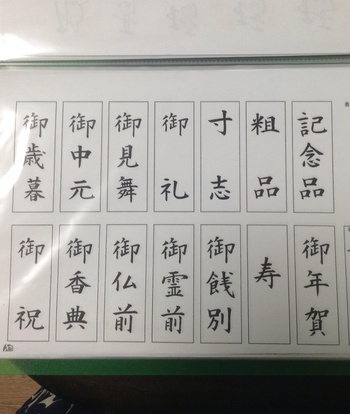 記念品
粗品
寸志
御礼
御見舞
御中元
御歳暮
御年賀
寿
御餞別
御霊前
御仏前
御香典
御祝